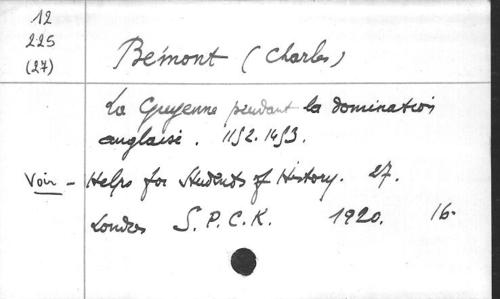 12
225
(27)
Bémont (Charles)
La Guyenne pendant la domination
anglaise. 1152.1453.
Voir - Helps for Students of History. 27.
Londres S.P.C.K. 1920. 16-